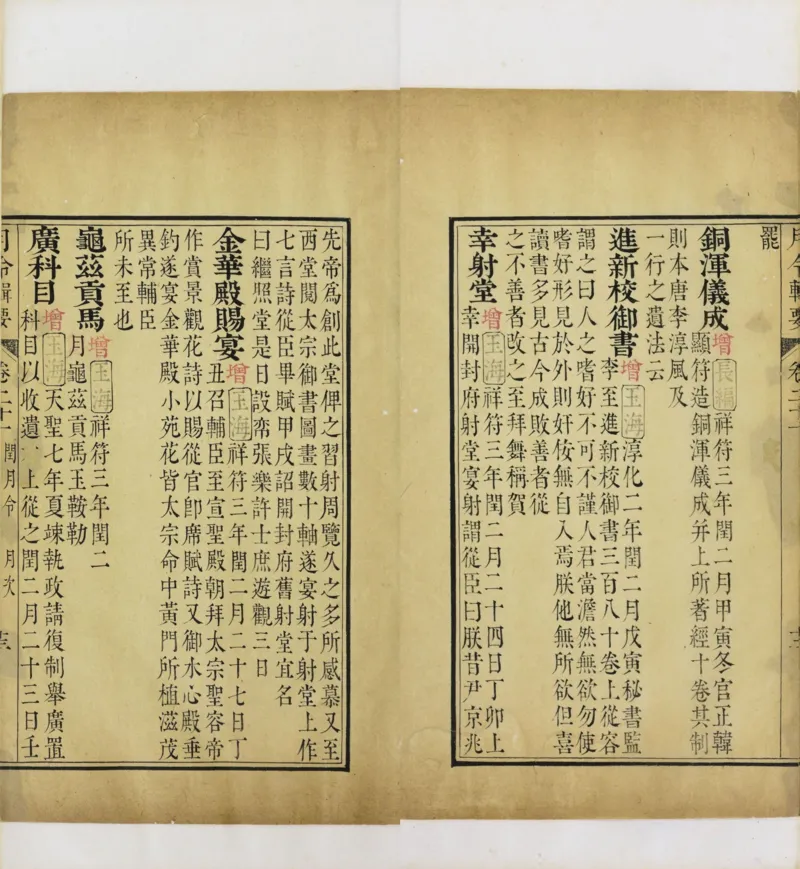 月令輯要 卷二十一
罷
銅渾儀成 增 長編 祥符三年閏二月甲寅冬官正韓
顯符造銅渾儀成并上所著經十卷其制
則本唐李淳風及
一行之遺法云
進新校御書 增 玉海 淳化二年閏二月戊寅秘書監
李至進新校御書三百八十卷上從容
謂之曰人之嗜好不可不謹人君當澹然無欲勿使
嗜好形見於外則奸佞無自入焉朕他無所欲但喜
讀書多見古今成敗善者從
之不善者改之至拜舞稱賀
幸射堂 增 玉海 祥符三年閏二月二十四日丁卯上
幸開封府射堂宴射謂從臣曰朕昔尹京兆
先帝爲創此堂俾之習射周覽久之多所感慕又至
西堂閱太宗御書圖畫數十軸遂宴射于射堂上作
七言詩從臣畢賦甲戌詔開封府舊射堂宜名
曰繼照堂是日設帟張樂許士庶遊觀三日
金華殿賜宴 增 玉海 祥符三年閏二月二十七日丁
丑召輔臣至宣聖殿朝拜太宗聖容帝
作賞景觀花詩以賜從官卽席賦詩又御水心殿垂
釣遂宴金華殿小苑花皆太宗命中黃門所植滋茂
異常輔臣
所未至也
龜茲貢馬 增 玉海 祥符三年閏二
月龜茲貢馬玉鞍勒
廣科目 增 玉海 天聖七年夏竦執政請復制舉廣置
科目以收遺上從之閏二月二十三日壬
月令輯要 卷二十一 閏月令 月次